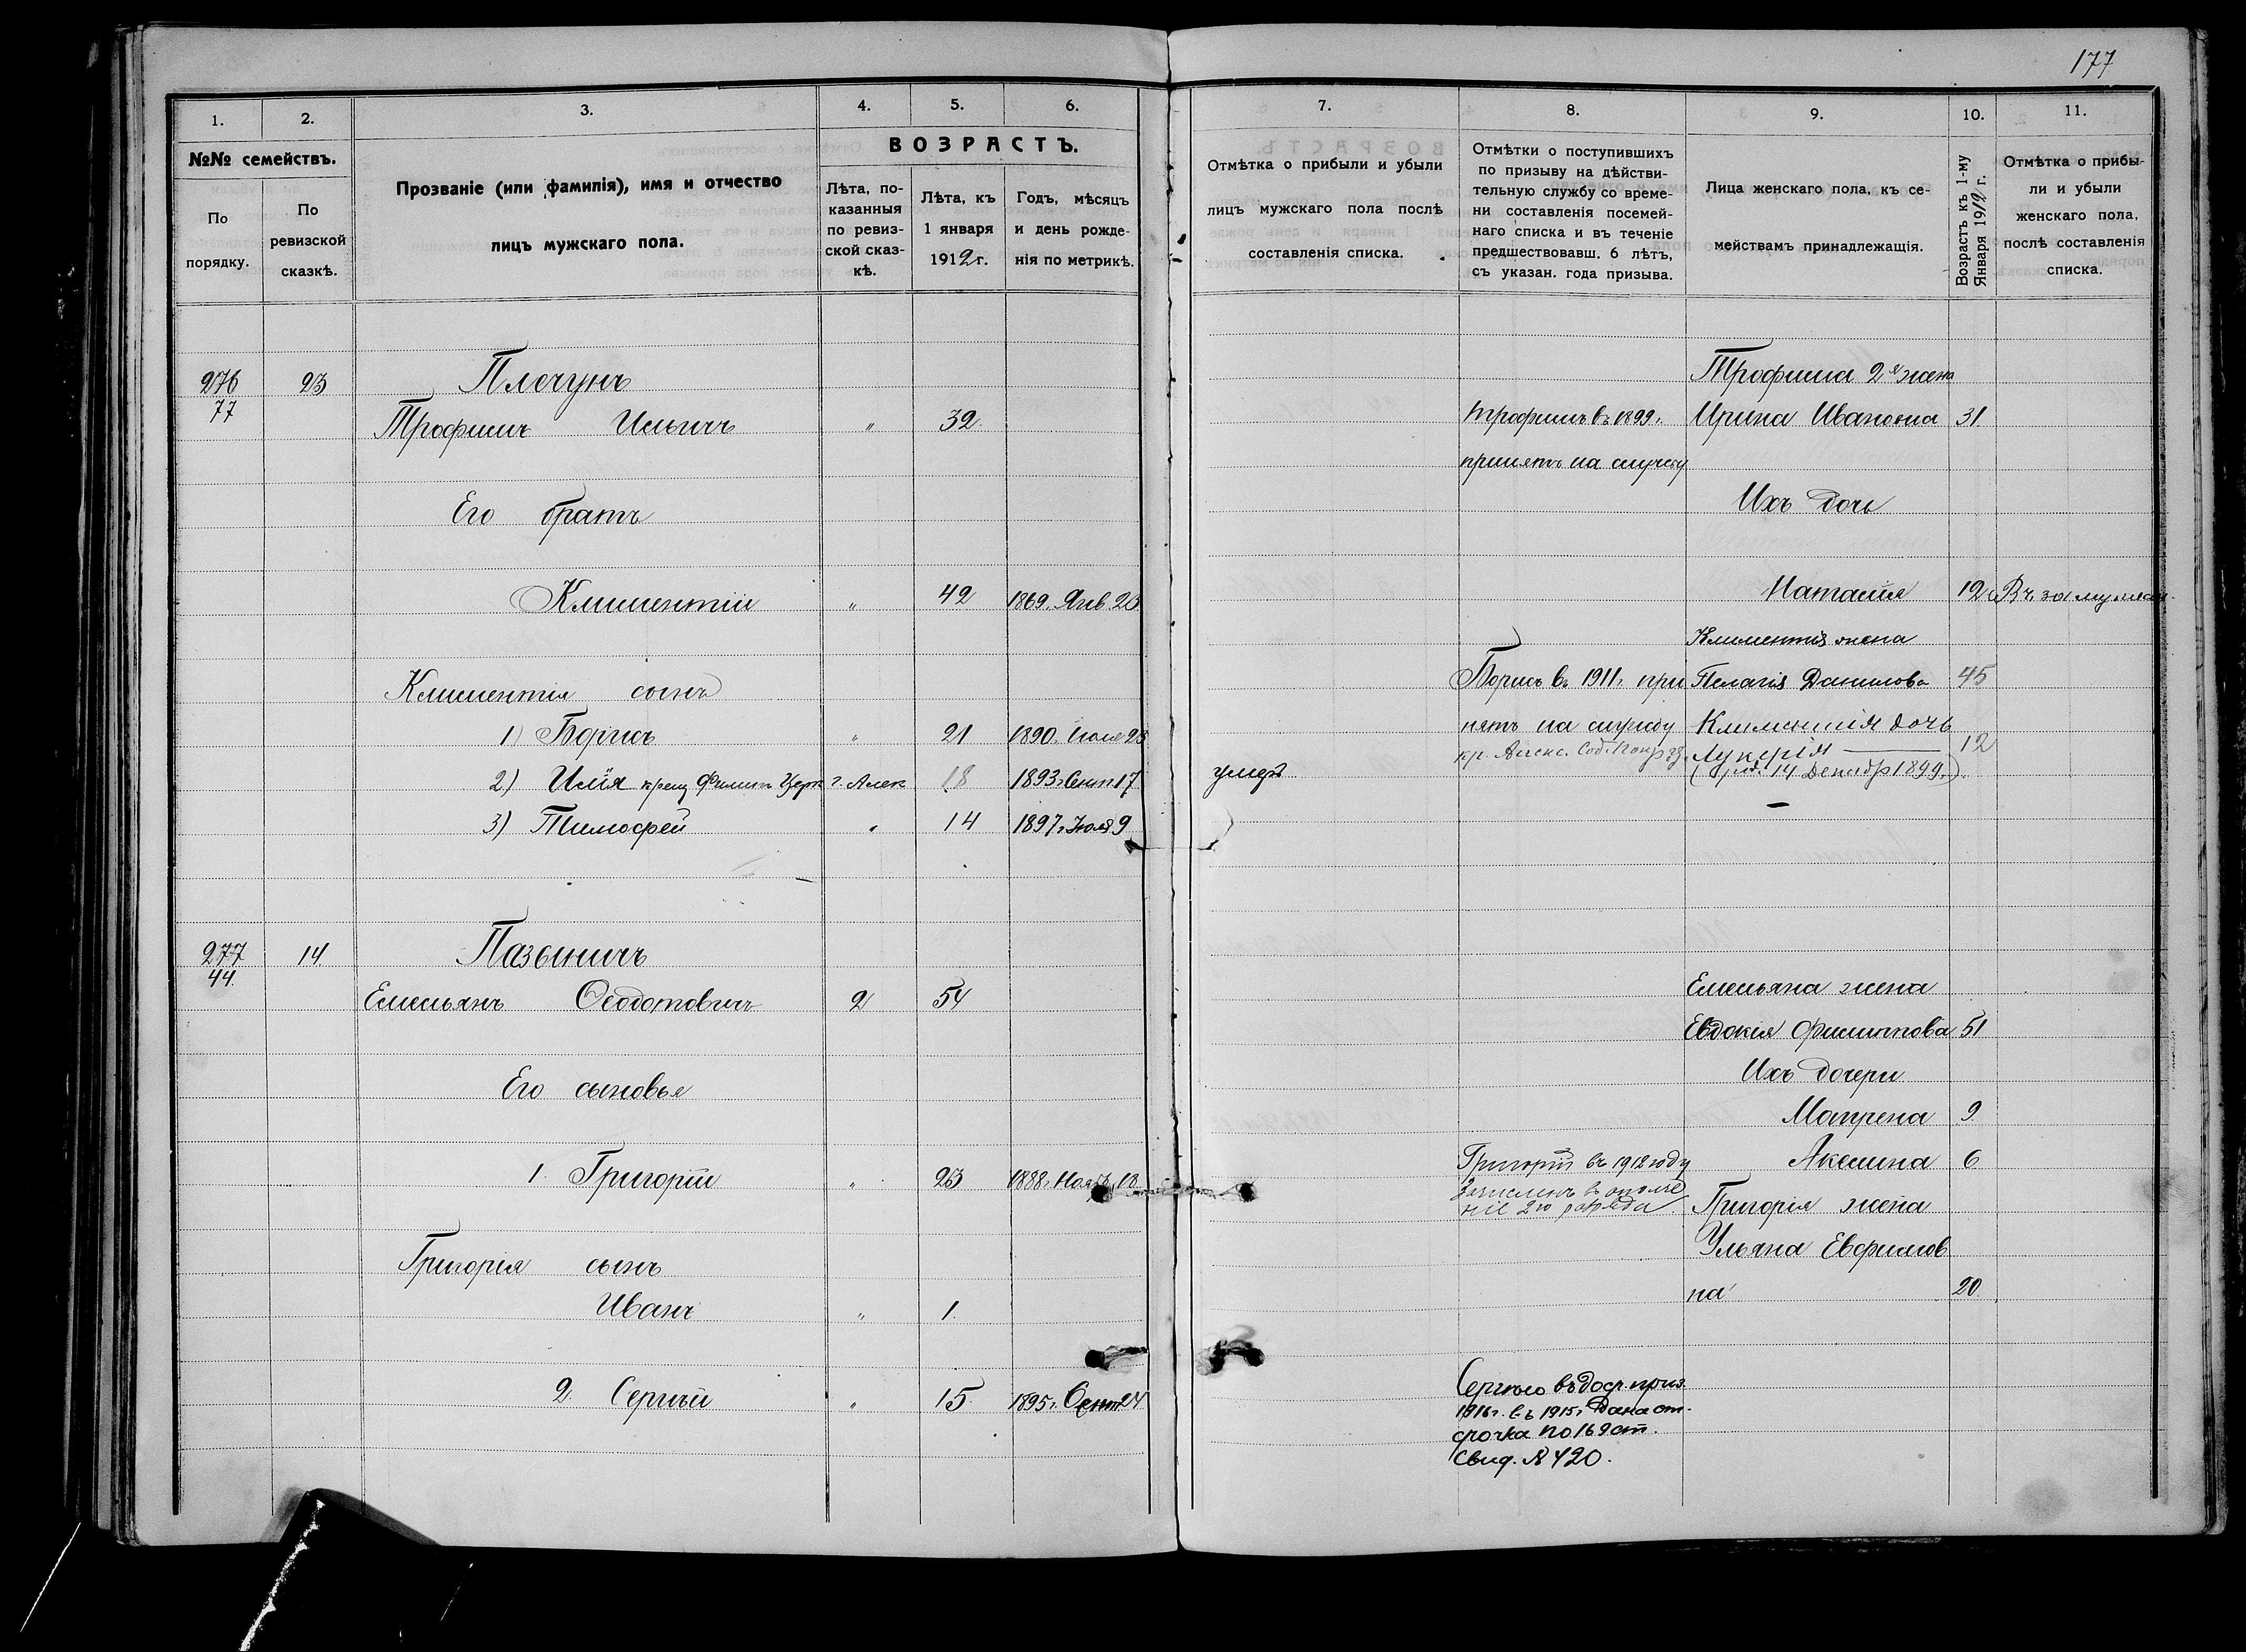 177
1.
2.
3.
4.
5.
6.
№№ семействъ.
По порядку.
По ревизской сказкѣ.
Прозваніе (или фамилія), имя и отчество
лицъ мужскаго пола.
ВОЗРАСТЪ.
Лѣта, по-
казанныя
по ревиз-
ской сказ-
кѣ.
Лѣта, къ
1 января
1912 г.
Годъ, мѣсяцъ
и день рожде-
нія по метрикѣ.
276
77
23
Плечунъ
Трофимъ Ильичъ " 32.
Его братъ
Климентій " 42 1869. Янв 23
Климентія сынъ
1) Борисъ " 21 1890. Іюля 23
2) Илія крещ Филип Церк г. Алек 18 1893 г. Сент. 17
3) Тимофей " 14 1897 г. Іюля 9
277
44.
14.
Пазыничъ
Емельянъ Ѳеодотовичъ 2 54
Его сыновья
1. Григорій " 23 1888 г. Нояб. 18
Григорія сынъ
Иванъ " 1.
2. Сергѣй " 15. 1895 г. Сент 24
7.
8.
9.
10.
11.
Отмѣтка о прибыли и убыли
лицъ мужскаго пола послѣ
составленія списка.
Отмѣтки о поступившихъ
по призыву на дѣйстви-
тельную службу со време-
ни составленія посемей-
наго списка и въ теченіе
предшествовавш. 6 лѣтъ,
съ указан. года призыва.
Лица женскаго пола, къ се-
мействамъ принадлежащія.
Возрастъ къ 1-му
Января 1912 г.
Отмѣтка о прибы-
ли и убыли
женскаго пола,
послѣ составленія
списка.
Трофима 2я жена
Трофимъ въ 1899 г. Ирина Ивановна 31
принятъ на службу
Ихъ дочь
Наталія 12
Климентія жена
Борисъ въ 1911 г. при Пелагія Данилова 45
нятъ на службу Климентія дочь
Лукерія 12
умеръ (род. 14 Декабр 1899 г.)
Емельяна жена
Евдокія Филиппова 51
Ихъ дочери
Матрена 9.
Григорій въ 1912 году Акелина 6
Зачисленъ в ополче
ніе 2го разряда Григорія жена
Ульяна Евфимов
на 20.
Сергѣю въ доср. приз.
1916 г. въ 1915 г. Дана от-
срочка по 169 ст.
Свид. № 420.